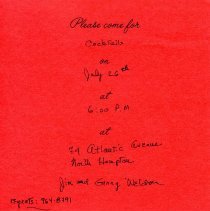 Please come for
Cocktails
on
July 26th
at
6:00 P.M
at
Atlantic Avenue
North Hampton
Jim and
Regrets: 964-8391